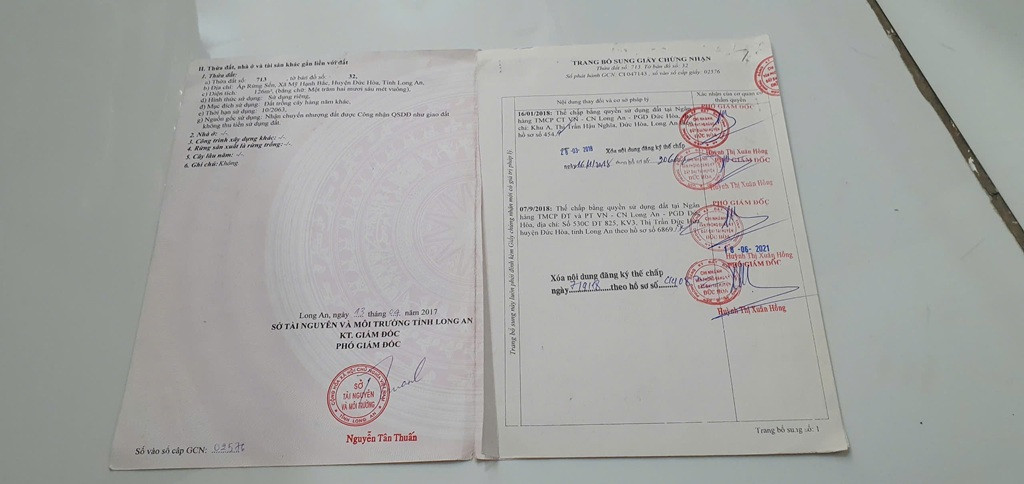 II. Thửa đất, nhà ở và tài sản khác gắn liền với đất
1. Thửa đất:
a) Thửa đất số: 713 , tờ bản đồ số: 32,
b) Địa chỉ: Ấp Rừng Sến, Xã Mỹ Hạnh Bắc, Huyện Đức Hòa, Tỉnh Long An,
c) Diện tích: 126m², (bằng chữ: Một trăm hai mươi sáu mét vuông),
d) Hình thức sử dụng: Sử dụng riêng,
đ) Mục đích sử dụng: Đất trồng cây hàng năm khác,
e) Thời hạn sử dụng: 10/2063,
g) Nguồn gốc sử dụng: Nhận chuyển nhượng đất được Công nhận QSDĐ như giao đất
không thu tiền sử dụng đất
2. Nhà ở: -/-
3. Công trình xây dựng khác: -/-
4. Rừng sản xuất là rừng trồng: -/-
5. Cây lâu năm: -/-
6. Ghi chú: Không
Long An, ngày 13 tháng 04 năm 2017
SỞ TÀI NGUYÊN VÀ MÔI TRƯỜNG TỈNH LONG AN
KT. GIÁM ĐỐC
PHÓ GIÁM ĐỐC
CỘNG HÒA XÃ HỘI CHỦ NGHĨA VIỆT NAM
SỞ
TÀI NGUYÊN
VÀ MÔI TRƯỜNG
TỈNH LONG AN
Nguyễn Tân Thuấn
Số vào sổ cấp GCN: 02578
TRANG BỔ SUNG GIẤY CHỨNG NHẬN
Thửa đất số: 713 Tờ bản đồ số: 32
Số phát hành GCN: CI 047143 , số vào sổ cấp giấy: 02578
Nội dung thay đổi và cơ sở pháp lý
Xác nhận của cơ quan có
thẩm quyền
16/01/2018: Thế chấp bằng quyền sử dụng đất tại Ngân
hàng TMCP CT VN - CN Long An - PGD Đức Hòa, địa
chỉ: Khu A, Thị Trấn Hậu Nghĩa, Đức Hòa, Long An
hồ sơ số 454
PHÓ GIÁM ĐỐC
Huỳnh Thị Xuân Hồng
-03- 2018 Xóa nội dung đăng ký thế chấp
ngày 16/01/2018 theo hồ sơ số
PHÓ GIÁM ĐỐC
Huỳnh Thị Xuân Hồng
07/9/2018: Thế chấp bằng quyền sử dụng đất tại Ngân
hàng TMCP ĐT và PT VN - CN Long An - PGD Đức
Hòa, địa chỉ: Số 530C ĐT 825, KV3, Thị Trấn Đức Hòa,
huyện Đức Hòa, tỉnh Long An theo hồ sơ số 6869
PHÓ GIÁM ĐỐC
Huỳnh Thị Xuân Hồng
18 -06- 2021
PHÓ GIÁM ĐỐC
Xóa nội dung đăng ký thế chấp
ngày 7/9/18 theo hồ sơ số
Huỳnh Thị Xuân Hồng
Trang bổ sung này luôn phải đính kèm Giấy chứng nhận mới có giá trị pháp lý.
Trang bổ sung số: 1